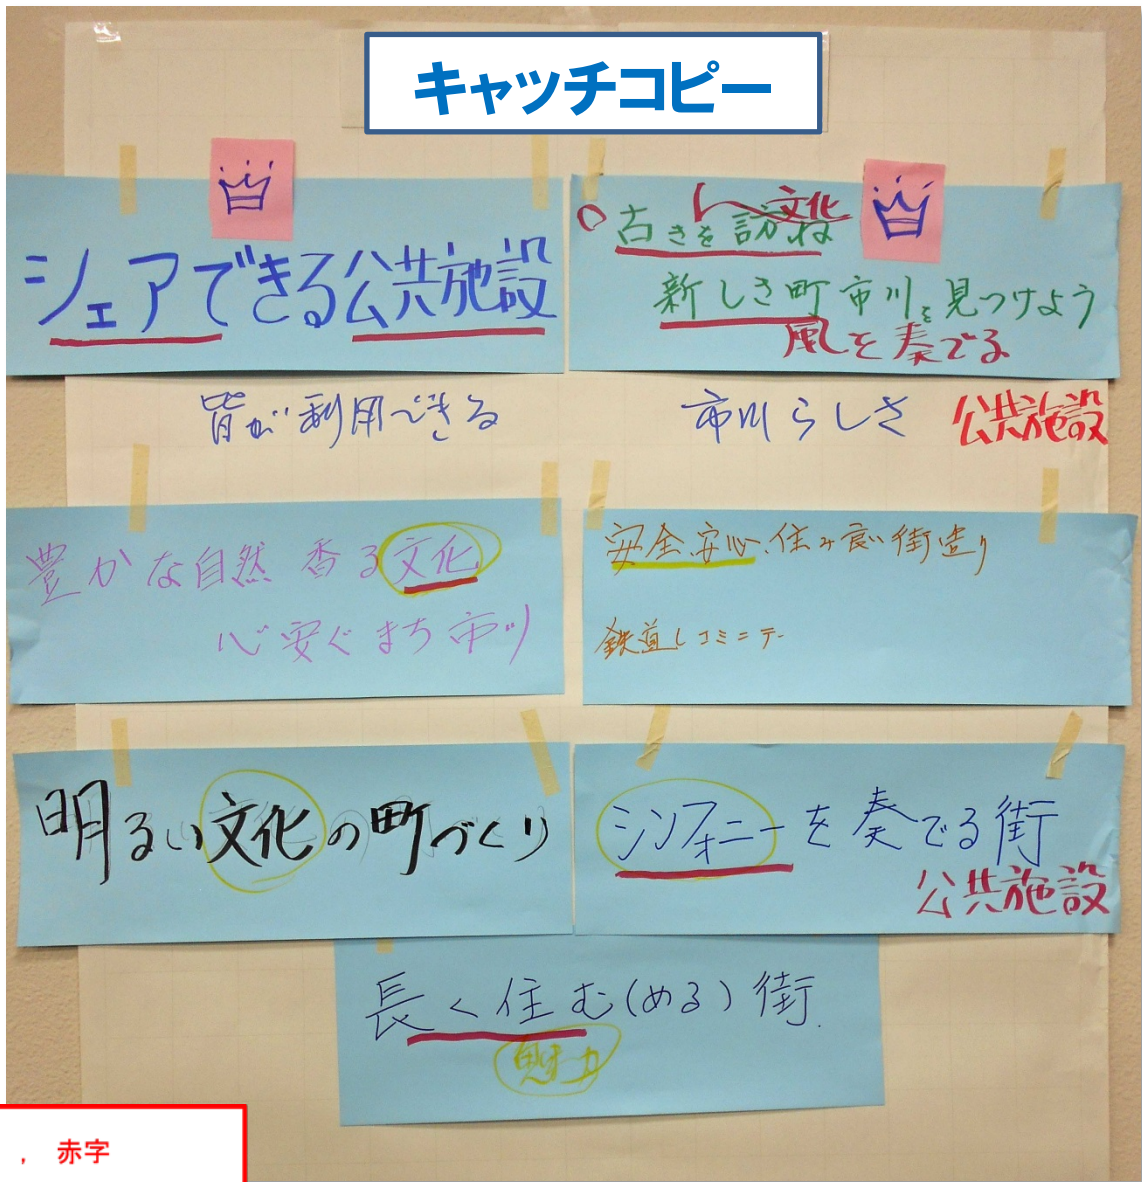 キャッチコピー
シェアできる公共施設
皆が利用できる
文化
古きを訪ね
新しき町市川を見つけよう
風を奏でる
市川らしさ 公共施設
豊かな自然 香る文化
心安ぐまち市川
安全、安心、住み良い街造り
鉄道しコミニテー
明るい文化の町づくり
シンフォニーを奏でる街
公共施設
長く住む(める)街
魅力
, 赤字